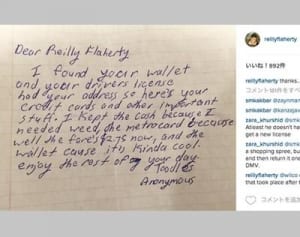 Dear Reilly Flaherty
I found your wallet
and your drivers license
had your address so here's your
credit cards and other important
stuff. I kept the cash because I
needed weed, the metrocard because
well the fare's 2.75 now, and the
wallet cause it's kinda cool.
enjoy the rest of your day
Toodles
Anonymous
reillyflaherty
いいね！892件
reillyflaherty thanks.
smkakbar @zaynma
smkakbar @kanzajav
zara_khurshid @smka
Atleast he doesn't have
get a new license
zara_khurshid @smk
a shopping spree, but
and then return it one
DMV.
reillyflaherty @wilco
that took place after t